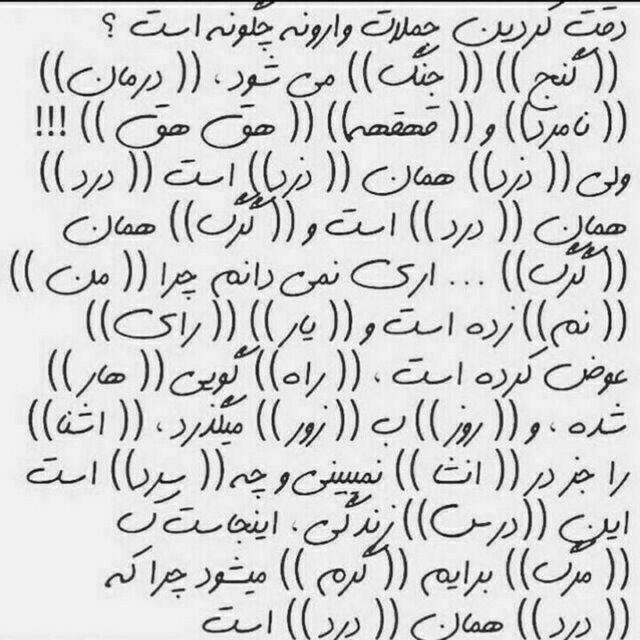 دقت کردین جملات وارونه چگونه است ؟
(( گنج )) (( جنگ )) می شود ، (( درمان ))
(( نامرد )) و (( قهقهه )) (( هق هق )) !!!
ولی (( دزد )) همان (( دزد )) است (( درد ))
همان (( درد )) است و (( گرگ )) همان
(( گرگ )) ... اری نمی دانم چرا (( من ))
(( نم )) زده است و (( یار )) (( رای ))
عوض کرده است ، (( راه )) گویی (( هار ))
شده ، و (( روز )) ب (( زور )) میگذرد ، (( اشنا ))
را جز در (( انشا )) نمیبینی و چه (( سرد )) است
این (( درس )) زندگی ، اینجاست ک
(( مرگ )) برایم (( گرم )) میشود چرا که
(( درد )) همان (( درد )) است